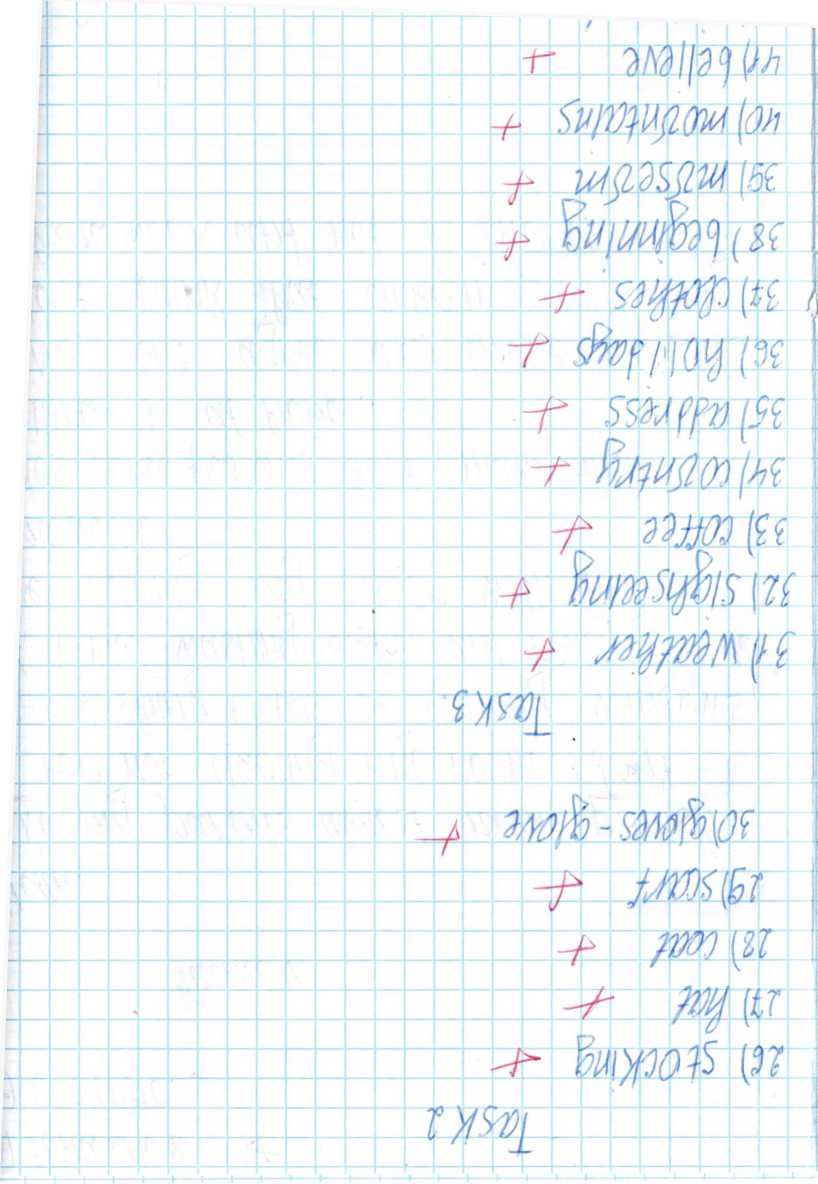 Task 2
26) stocking +
27) hat +
28) coat +
29) scarf +
30) gloves - glove +
Task 3.
31) weather +
32) sighseeing +
33) coffee +
34) country +
35) address +
36) holidays +
37) clothes +
38) beginning +
39) museum +
40) mountains +
41) believe +